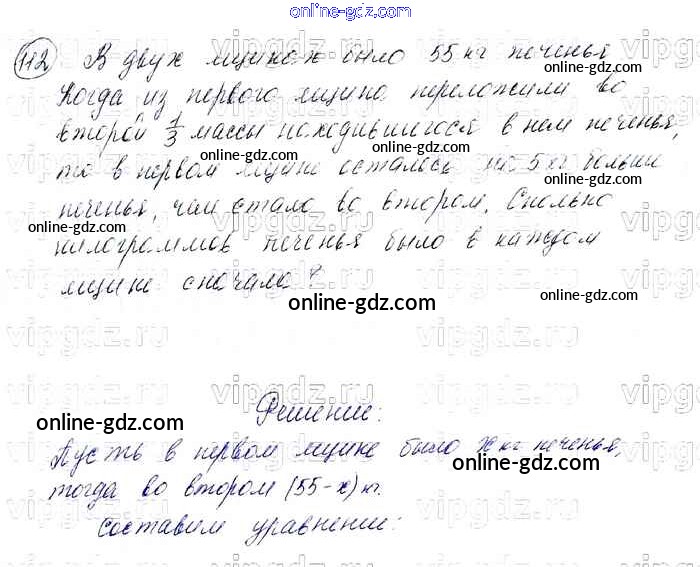 online-gdz.com
112 В двух ящиках было 55 кг печенья
Когда из первого ящика переложили во
второй 1/3 массы находившегося в нем печенья,
то в первом ящике осталось на 5 кг больше
печенья, чем стало во втором. Сколько
килограммов печенья было в каждом
ящике сначала?
Решение:
Пусть в первом ящике было x кг печенья,
тогда во втором (55-x) кг.
составим уравнение:
online-gdz.com
online-gdz.com
online-gdz.com
online-gdz.com
online-gdz.com
online-gdz.com
online-gdz.com
online-gdz.com
online-gdz.com
online-gdz.com